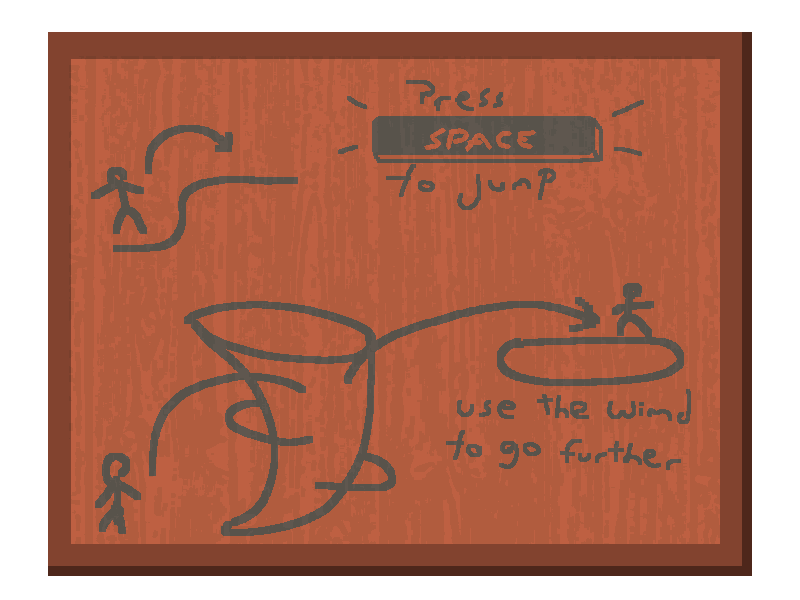 Press
SPACE
to jump
use the wind
to go further